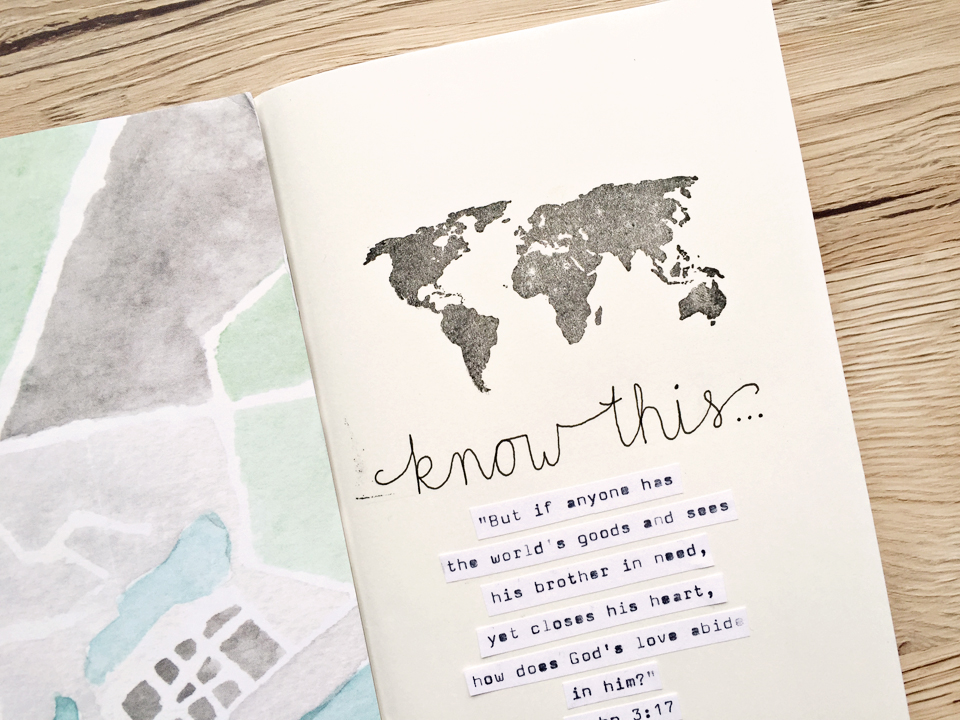 know this...
"But if anyone has
the world's goods and sees
his brother in need,
yet closes his heart,
how does God's love abide
in him?"
3:17